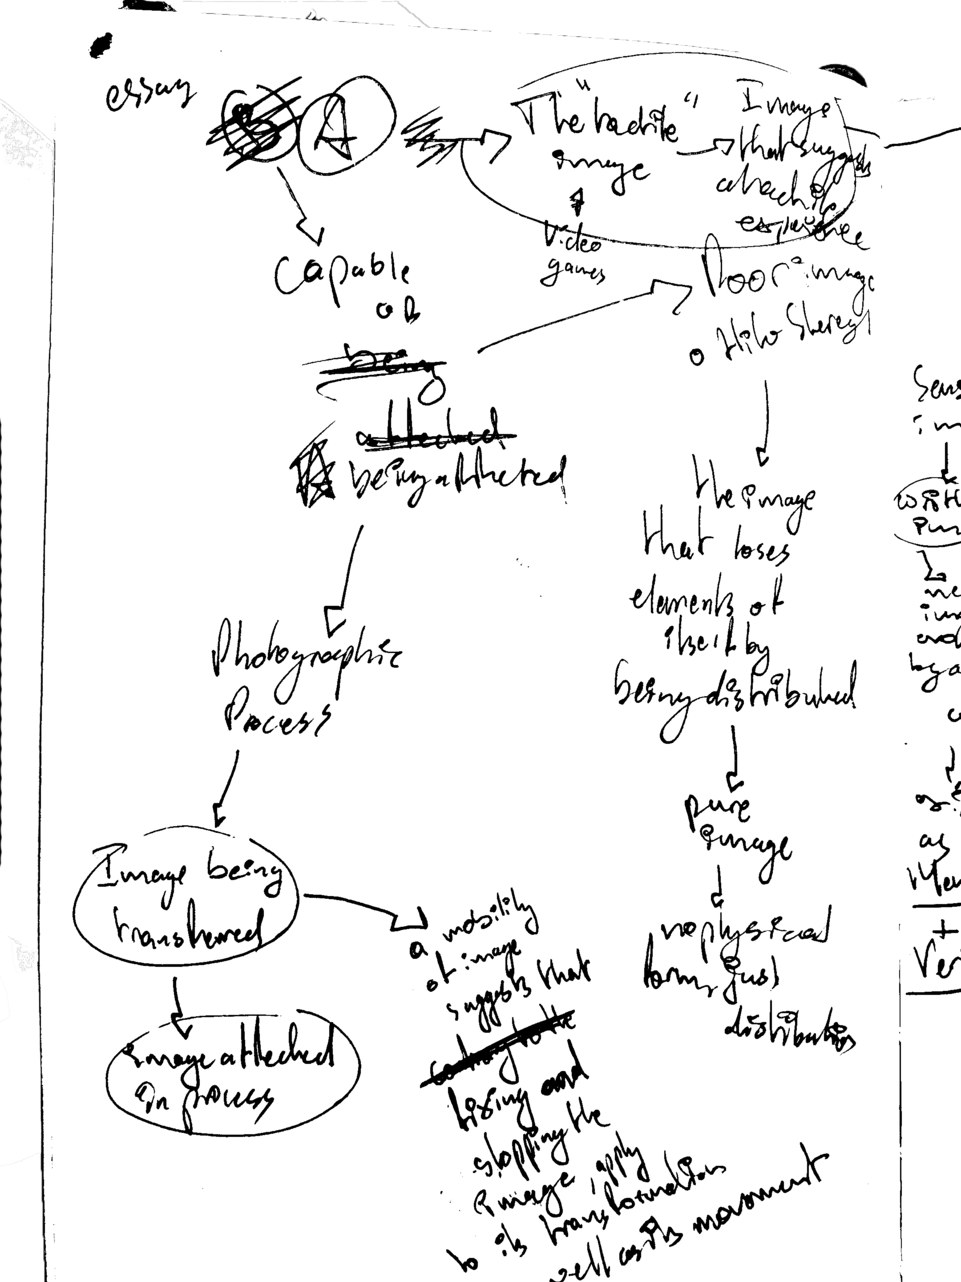 essay
A
The "tactile"
image
Video
games
Image
that suggests
a tactile
experience
Capable
OB
being
attected
being attected
Poor image
o Hito Steyerl
the image
that loses
elements of
itself by
being distributed
pure
image
no physical
form, just
distribution
Photographic
Process
Image being
transferred
image attected
in process
a mobility
of image
suggests that
fixing and
stopping the
image, apply
to its transformation
well as its movement
Sens
im
with
pur
ne
by a
as
+
Ver